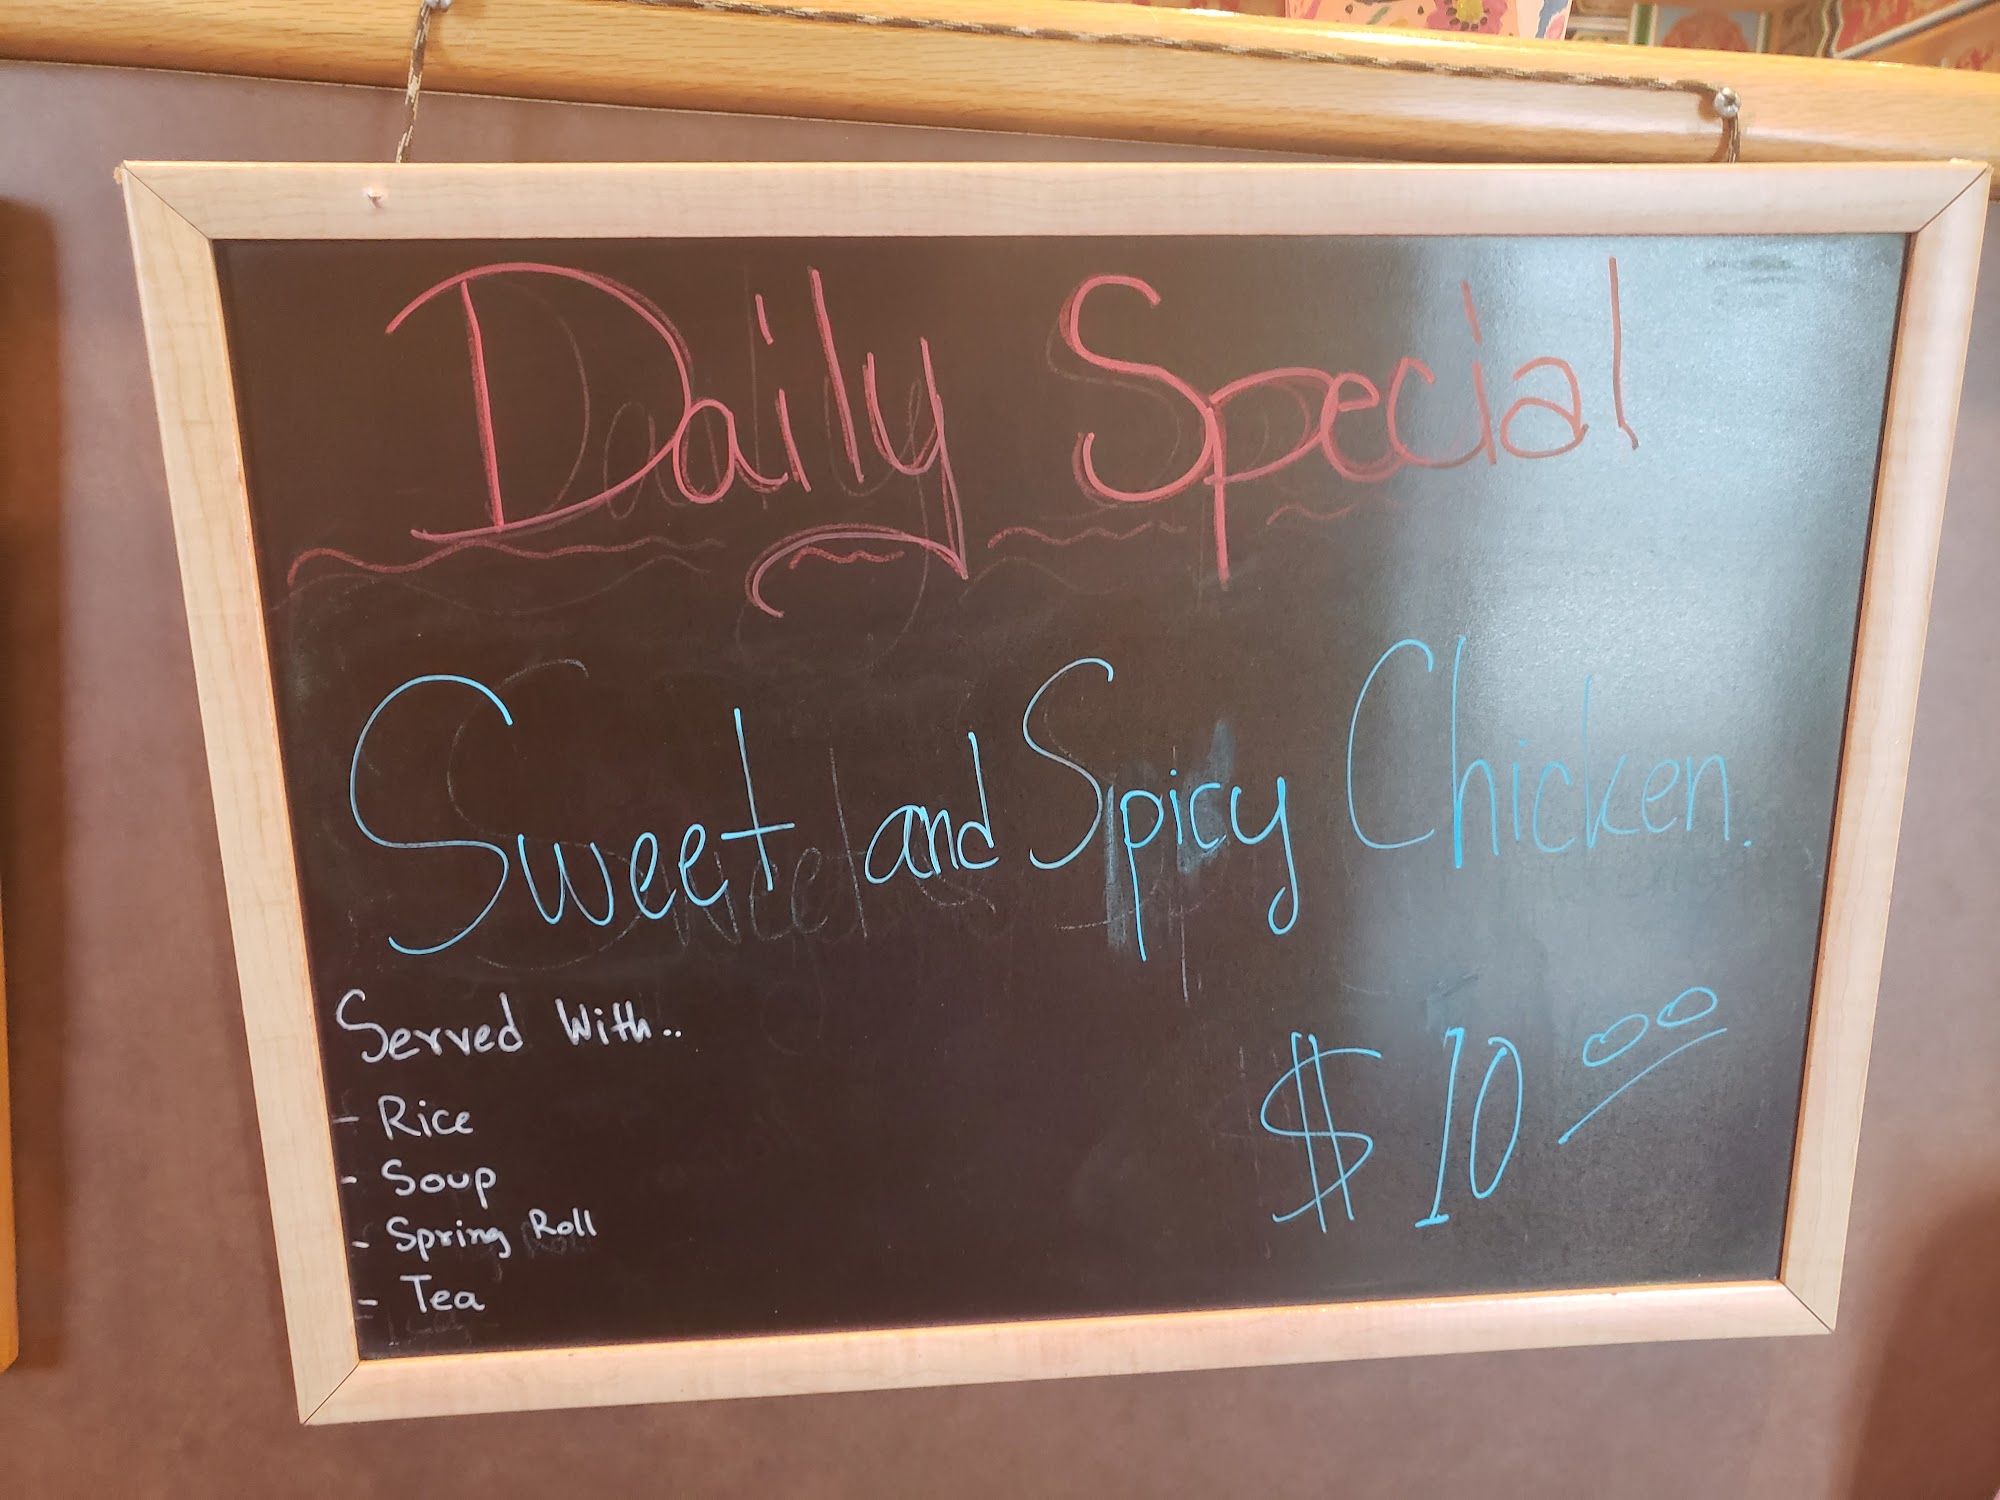 Daily Special
Sweet and Spicy Chicken.
Served With..
- Rice
- Soup
- Spring Roll
- Tea
$10.00